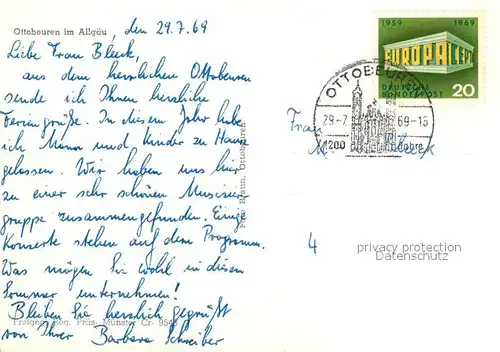 Ottobeuren im Allgäu, den 29.7.69
Liebe Frau Bleek,
aus dem herrlichen Ottobeuren
sende ich Ihnen herzliche
Feriengrüße. In diesem Jahr habe
ich Mann und Kinder zu Hause
gelassen. Wir haben uns hier
zu einer sehr schönen Musizier-
gruppe zusammengefunden. Einige
Konzerte stehen auf dem Programm.
Was mögen Sie wohl in diesem
Sommer unternehmen?
Bleiben Sie herzlich gegrüßt
von Ihrer Barbara Schreiber
Freigeg. Reg. Präs. Münster Cr. 9543
Ottobeuren
1959 1969
EUROPA CEPT
DEUTSCHE
BUNDESPOST 20
OTTOBEUREN
29.-7. 69.-15
1200 Jahre
Frau
M. Bleek
4
privacy protection
Datenschutz